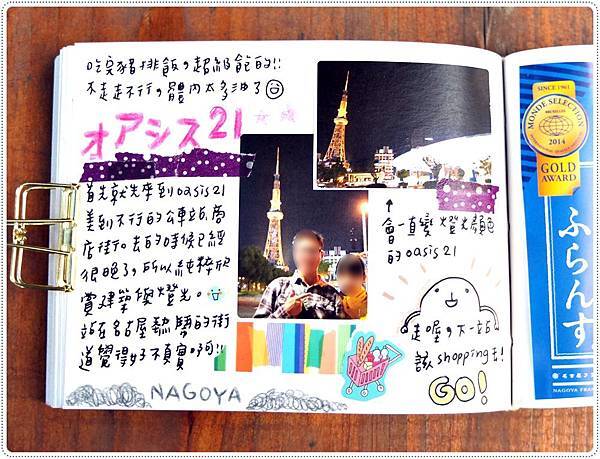 吃完豬排飯，超級飽的!!
不走走不行，體內太多油了
オアシス21
首先就先來到oasis21
美到不行的公車站商
店街。去的時候已經
很晚了，所以純粹欣
賞建築條燈光。
站在名古屋熱鬧的街
道覺得好不真實啊!!
NAGOYA
↑
會一直變燈光顏色
的oasis21
走喔，下一站
該shopping去!
GO!
SINCE 1961
MONDE SELECTION
BRUXELLES
2014
GOLD
AWARD
ふらんす
名古屋ふ
NAGOYA FRAN